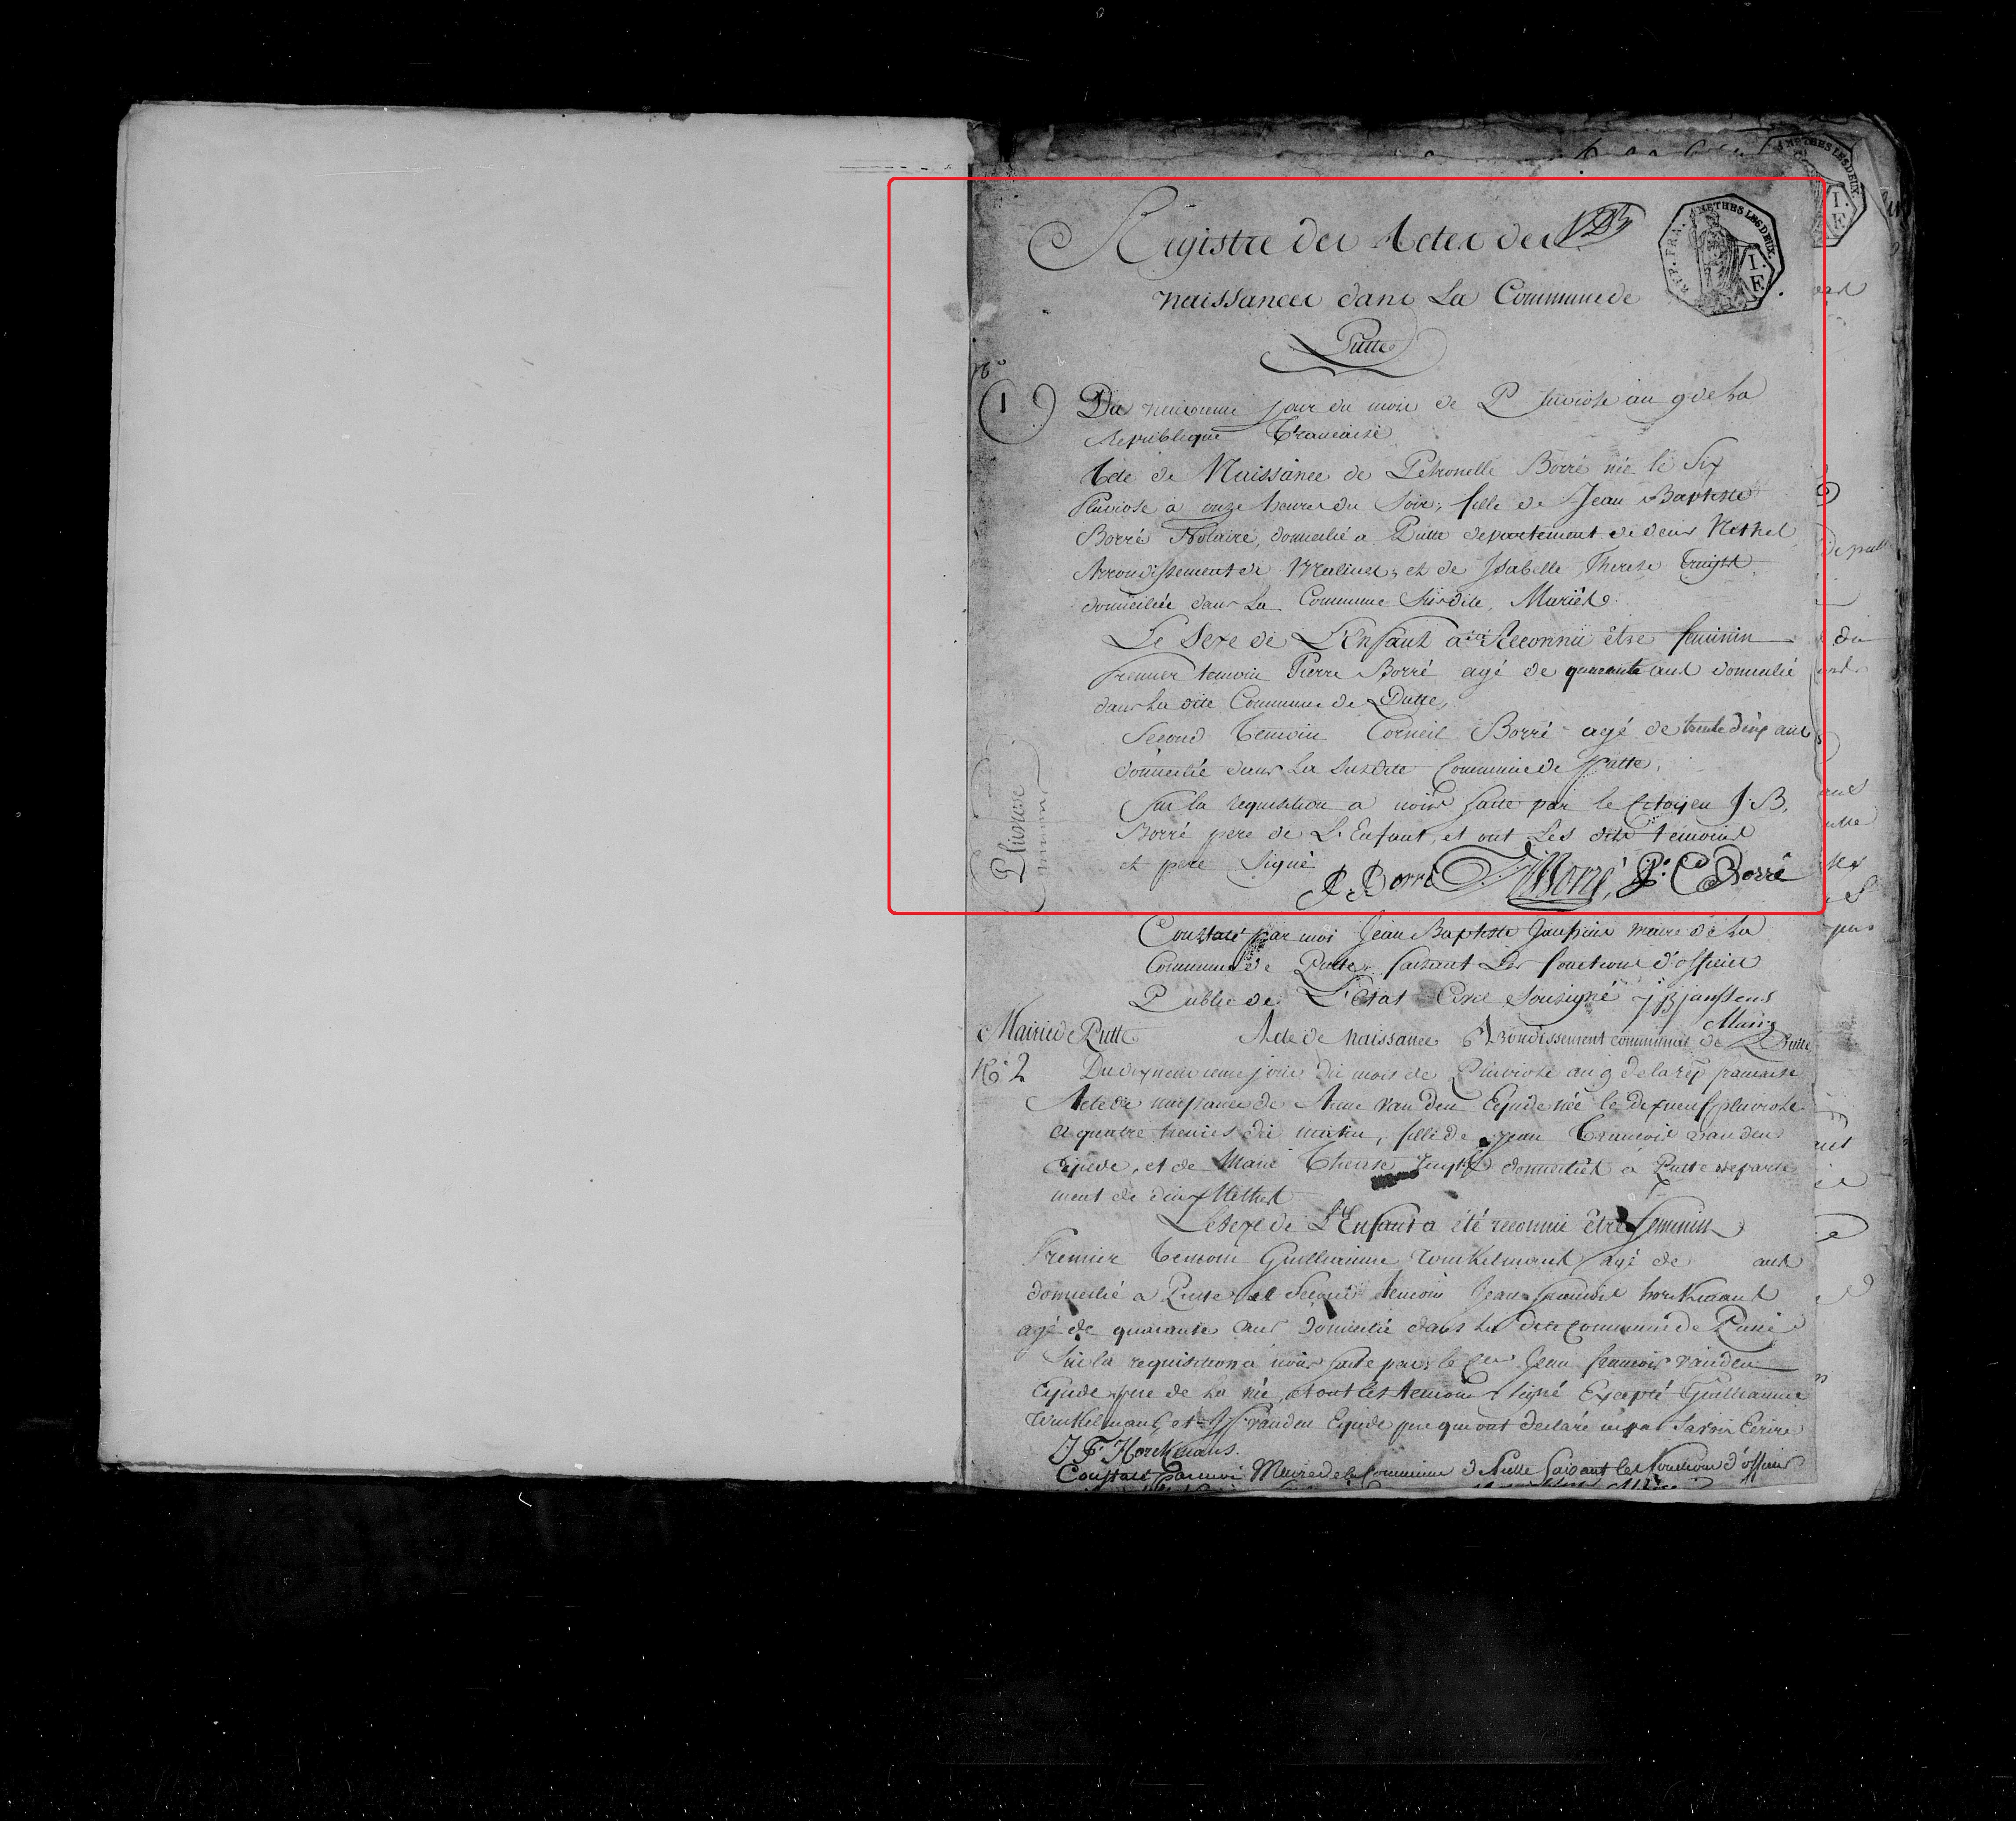 Registre des Actes des
naissances dans La Commune de
Putte
REP. FRA. METHES LES DEUX
N°
1
Du neuvieme jour du mois de Pluviose an 9 de La
Republique Francaise
Acte de Naissance de Petronelle Borré née le Six
Pluviose à onze heures du Soir, fille de Jean Baptiste
Borré Notaire, domicilié a Putte departement de deux Nethes
Arrondissement de Malines, et de Isabelle Therese
domiciliée dans La Commune Susdite, Mariés.
Le Sexe de L'Enfant a été Reconnu être feminin
Premier temoin Pierre Borré agé de quarante ans domicilié
dans La dite Commune de Putte,
Second Temoin Corneil Borré agé de trente ans
domicilié dans La Susdite Commune de Putte,
Sur la requisition a nous faite par le Citoyen J. B.
Borré pere de L'Enfant, et ont Les dits temoins
et pere Signé
P. Borré J B Borré, P. C Borré
Pluviose
Constaté par moi Jean Baptiste Janssens Maire de La
Commune de Putte faisant Les fonctions d'officier
Public de L'Etat Civil Sousigné J B Janssens
Maire
Mairie de Putte Acte de Naissance Arrondissement communal de Putte
N° 2 Du dixneuvieme jour du mois de Pluviose an 9 de la rep francaise
Acte de naissance de Anne van den Eynde née le dixneuf pluviose
a quatre heures du matin, fille de Jean Francois vanden
Eynde, et de Marie Therese domiciliés à Putte departe
ment de deux Nethes
Le Sexe de L'Enfant a été reconnu être feminin
Premier temoin Guillaume agé de ans
domicilié a Putte et Second temoin Jean francois
agé de quarante ans domicilié dans La dite commune de Putte
Sur la requisition a nous faite par le Jean francois vanden
Eynde pere de La née, et ont les temoins signé Excepté Guillaume
et vanden Eynde pere qui ont declaré Savoir Ecrire
J F Horckmans.
Constaté par moi Maire de la Commune de Putte faisant les fonctions d'officier